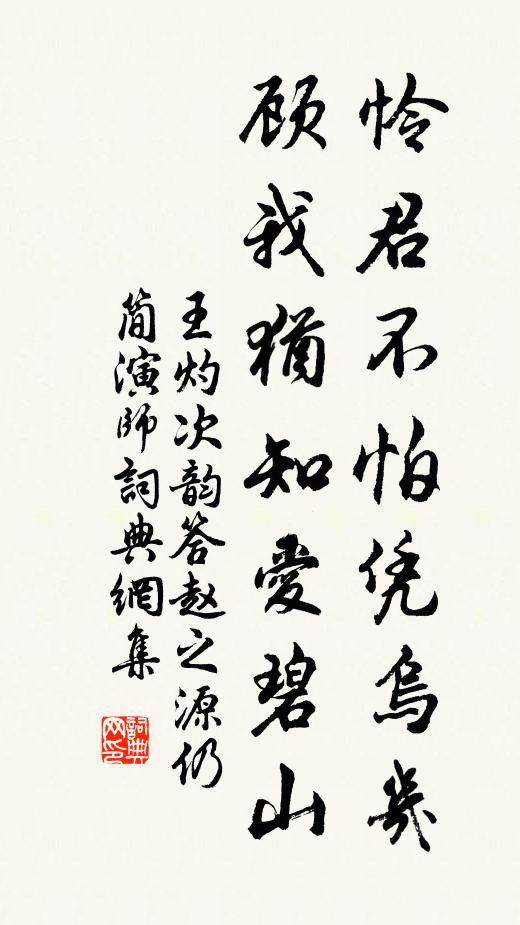 怜君不怕凭乌几
顾我犹知爱碧山
王灼次韵答赵之源仍
简演师词典网集
词典网印